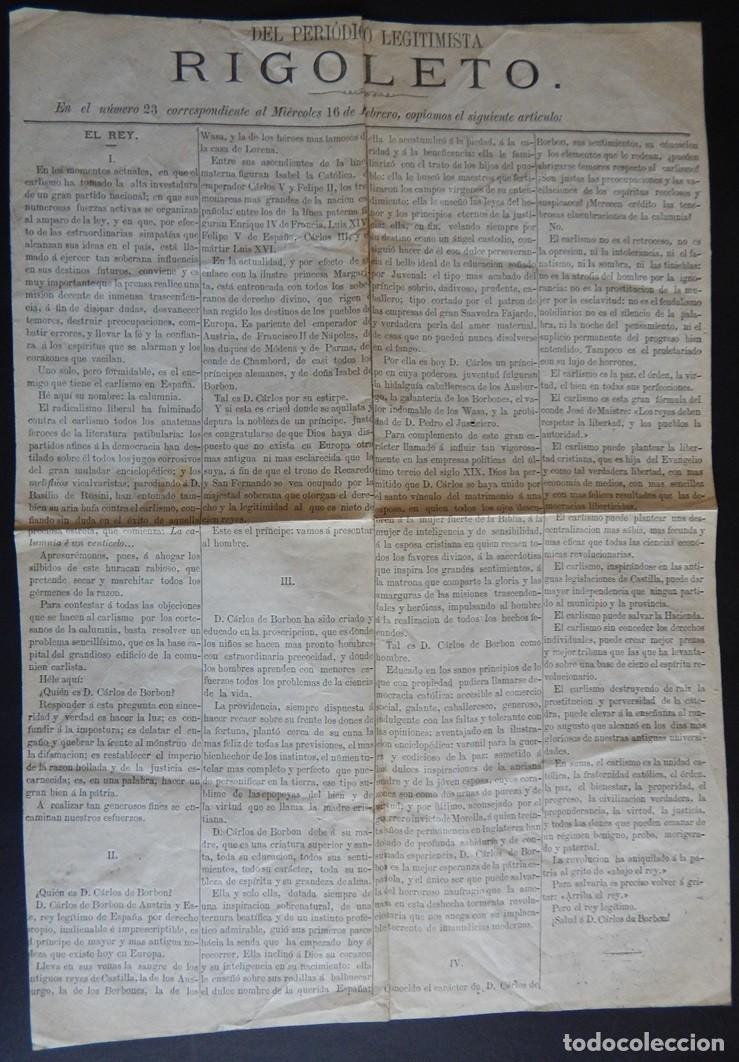 DEL PERIÓDICO LEGITIMISTA
RIGOLETO.
En el número 23 correspondiente al Miércoles 16 de Febrero, copiamos el siguiente artículo:
EL REY.
I.
En los momentos actuales, en que el
carlismo ha tomado la alta investidura
de un gran partido nacional; en que sus
numerosas fuerzas activas se organizan
al amparo de la ley, y en que, por efec-
to de las estraordinarias simpatías que
alcanzan sus ideas en el país, está lla-
mado á ejercer tan soberana influencia
en sus destinos futuros, conviene y es
muy importante que la prensa realice una
mision decente de inmensa trascenden-
cia, á fin de disipar dudas, desvanecer
temores, destruir preocupaciones, com-
batir errores, y llevar la fé y la confian-
za á los espíritus que se alarman y los
corazones que vacilan.
Uno solo, pero formidable, es el ene-
migo que tiene el carlismo en España.
Hé aquí su nombre: la calumnia.
El radicalismo liberal ha fulminado
contra el carlismo todos los anatemas
feroces de la literatura patibularia: los
partidos afines á la democracia han des-
tilado sobre él todos los jugos corrosivos
del gran muladar enciclopédico; y los
melífluos vicalvaristas, parodiando á D.
Basilio de Rosini, han entonado tam-
bien su aria bufa contra el carlismo, con-
fiando sin duda en el éxito de aquella
preciosa estrofa, que comienza: La ca-
lumnia é un venticelo...
Apresurémonos, pues, á ahogar los
silbidos de este huracan rabioso, que
pretende secar y marchitar todos los
gérmenes de la razon.
Para contestar á todas las objeciones
que se hacen al carlismo por los corte-
sanos de la calumnia, basta resolver un
problema sencillísimo, que es la base capi-
tal del grandioso edificio de la comu-
nion carlista.
Héle aquí:
¿Quién es D. Cárlos de Borbon?
Responder á esta pregunta con since-
ridad y verdad es hacer la luz; es con-
fundir á la impostura; es delatar el en-
gaño y quebrar la frente al mónstruo de
la difamacion; es restablecer el imperio
de la razon hollada y de la justicia es-
carnecida; es, en una palabra, hacer un
gran bien á la pátria.
A realizar tan generosos fines se en-
caminan nuestros esfuerzos.
II.
¿Quién es D. Cárlos de Borbon?
D. Cárlos de Borbon de Austria y Es-
te, rey legítimo de España por derecho
propio, inalienable é imprescriptible, es
el príncipe de mayor y mas antigua no-
bleza que existe hoy en Europa.
Lleva en sus venas la sangre de los
antiguos reyes de Castilla, la de los Aus-
burgo, la de los Borbones, la de los
Wasa, y la de los héroes mas famosos de
la casa de Lorena.
Entre sus ascendientes de la línea
materna figuran Isabel la Católica, el
emperador Cárlos V y Felipe II, los tres
monarcas mas grandes de la nacion es-
pañola: entre los de la línea paterna fi-
guran Enrique IV de Francia, Luis XIV,
Felipe V de España, Cárlos III y el
mártir Luis XVI.
En la actualidad, y por efecto de su
enlace con la ilustre princesa Margari-
ta, está entroncada con todos los sobe-
ranos de derecho divino, que rigen ó
han regido los destinos de los pueblos de
Europa. Es pariente del emperador de
Austria, de Francisco II de Nápoles, de
los duques de Módena y de Parma, del
conde de Chambord, de casi todos los
príncipes alemanes, y de doña Isabel de
Borbon.
Tal es D. Cárlos por su estirpe.
Y si esta es crisol donde se aquilata y
depura la nobleza de un príncipe, justo
es congratularse de que Dios haya dis-
puesto que no exista en Europa otra
mas antigua ni mas esclarecida que la
suya, á fin de que el trono de Recaredo
y San Fernando se vea ocupado por la
majestad soberana que otorgan el dere-
cho y la legitimidad al que es nieto de
cien reyes.
Este es el príncipe: vamos á presentar
al hombre.
III.
D. Cárlos de Borbon ha sido criado y
educado en la proscripcion, que es donde
los niños se hacen mas pronto hombres
con estraordinaria precocidad, y donde
los hombres aprenden con menores es-
fuerzos todos los problemas de la ciencia
de la vida.
La providencia, siempre dispuesta á
hacer recaer sobre su frente los dones de
la fortuna, plantó cerca de su cuna la
mas feliz de todas las previsiones, el mas
bienhechor de los instintos, el númen tu-
telar mas completo y perfecto que pue-
de personificar en la tierra, ese tipo su-
blime de las epopeyas del bien y de
la virtud que se llama la madre cris-
tiana.
D. Cárlos de Borbon debe á su ma-
dre, que es una criatura superior y san-
ta, toda su educacion, todos sus senti-
mientos, todo su carácter, toda su no-
bleza de espíritu y su grandeza de alma.
Ella y solo ella, dotada siempre de
una inspiracion sobrenatural, de una
ternura beatífica y de un instinto profé-
tico admirable, guió sus primeros pasos
hácia la senda que ha empezado hoy á
recorrer. Ella inclinó á Dios su corazon
y su inteligencia en su nacimiento: ella
le enseñó sobre sus rodillas á balbucear
el dulce nombre de la querida España;
ella le acostumbró á la piedad, á la ca-
ridad y á la beneficencia: ella le fami-
liarizó con el trato de los hijos del pue-
blo: ella le buscó los maestros que ferti-
lizaron los campos vírgenes de su enten-
dimiento: ella le enseñó las leyes del ho-
nor y los principios eternos de la justi-
cia: ella, en fin, velando siempre por
su destino como un ángel custodio, con-
siguió hacer de él con dulce perseveran-
cia el bello ideal de la educacion señada
por Juvenal: el tipo mas acabado del
príncipe sobrio, dadivoso, prudente, ca-
ballero; tipo cortado por el patron de
las empresas del gran Saavedra Fajardo,
y verdadera perla del amor maternal,
de esas que no pueden nunca disolverse
en el fango.
Por ella es hoy D. Cárlos un prínci-
pe en cuya poderosa juventud fulguran
la hidalguía caballeresca de los Ausbur-
go, la galantería de los Borbones, el va-
lor indomable de los Wasa, y la probi-
dad de D. Pedro el Justiciero.
Para complemento de este gran ca-
rácter llamado á influir tan vigorosa-
mente en las empresas políticas del úl-
timo tercio del siglo XIX, Dios ha per-
mitido que D. Cárlos se haya unido por
el santo vínculo del matrimonio á una
esposa, en quien todos los ojos descu-
bren á la mujer fuerte de la Biblia, á la
mujer de inteligencia y de sensibilidad,
á la esposa cristiana en quien recaen to-
dos los favores divinos, á la sacerdotisa
que inspira los grandes sentimientos, á
la matrona que comparte la gloria y las
amarguras de las misiones trascenden-
tales y heróicas, impulsando al hombre
á la realizacion de todos los hechos fe-
cundos.
Tal es D. Cárlos de Borbon como
hombre.
Educado en los sanos principios de lo
que con propiedad pudiera llamarse de-
mocracia católica: accesible al comercio
social, galante, caballeresco, generoso,
indulgente con las faltas y tolerante con
las opiniones: aventajado en la ilustra-
cion enciclopédica: varonil para la guer-
ra y codicioso de la paz: sometido á
las dulces inspiraciones de la anciana
madre y de la jóven esposa, cuyos cora-
zones son como dos urnas de pureza y de
virtud; y por último, aconsejado por el
guerrero invicto de Morella, á quien trein-
ta años de permanencia en Inglaterra han
dotado de profunda sabiduría y de con-
sumada experiencia, D. Cárlos de Bor-
bon es la mejor esperanza de la pátria es-
pañola, y el único ser que puede salvar-
la del horroroso naufragio que la ame-
naza en esta deshecha tormenta revolu-
cionaria que nos anega con su implaca-
ble torrente de inmundicias modernas.
IV.
Conocido el carácter de D. Cárlos de
Borbon, sus sentimientos, su educacion
y los elementos que le rodean, ¿pueden
abrigarse temores respecto al carlismo?
¿Son justas las preocupaciones y las va-
cilaciones de los espíritus recelosos y
suspicaces? ¿Merecen crédito las tene-
brosas elucubraciones de la calumnia?
No.
El carlismo no es el retroceso, no es
la opresion, ni la intolerancia, ni el fa-
natismo, ni la sombra, ni las tinieblas:
no es la atrofia del hombre por la igno-
rancia: no es la prostitucion de la mu-
jer por la esclavitud: no es el feudalismo
nobiliario: no es el silencio de la pala-
bra, ni la noche del pensamiento, ni el
suplicio permanente del progreso bien
entendido. Tampoco es el proletariado
con su lujo de horrores.
El carlismo es la paz, el órden, la vir-
tud, el bien en todas sus perfecciones.
El carlismo es esta gran fórmula del
conde José de Maistre: «Los reyes deben
respetar la libertad, y los pueblos la
autoridad.»
El carlismo puede plantear la liber-
tad cristiana, que es hija del Evangelio
y como tal verdadera libertad, con mas
economía de medios, con mas sencillez
y con mas felices resultados que las de-
mocracias liberticidas.
El carlismo puede plantear una des-
centralizacion mas sábia, mas fecunda y
mas eficaz que todas las ciencias econó-
micas revolucionarias.
El carlismo, inspirándose en las anti-
guas legislaciones de Castilla, puede dar
mayor independencia que ningun parti-
do al municipio y la provincia.
El carlismo puede salvar la Hacienda.
El carlismo sin conceder los derechos
individuales, puede crear mejor prensa
y mejor tribuna que las que ha levanta-
do sobre una base de cieno el espíritu re-
volucionario.
El carlismo destruyendo de raiz la
prostitucion y perversidad de la cáte-
dra, puede elevar á la enseñanza al ran-
go augusto que alcanzó en los dias mas
gloriosos de nuestras antiguas universi-
dades.
En suma, el carlismo es la unidad ca-
tólica, la fraternidad católica, el órden,
la paz, el bienestar, la propiedad, el
progreso, la civilizacion verdadera, la
preponderancia, la virtud, la justicia,
y todos los dones que pueden emanar de
un régimen benigno, probo, morigera-
do y paternal.
La revolucion ha aniquilado á la pá-
tria al grito de «abajo el rey.»
Para salvarla es preciso volver á gri-
tar: «Arriba el rey.»
Pero el rey legítimo.
¡Salud á D. Cárlos de Borbon!
todocoleccion
todocoleccion.net